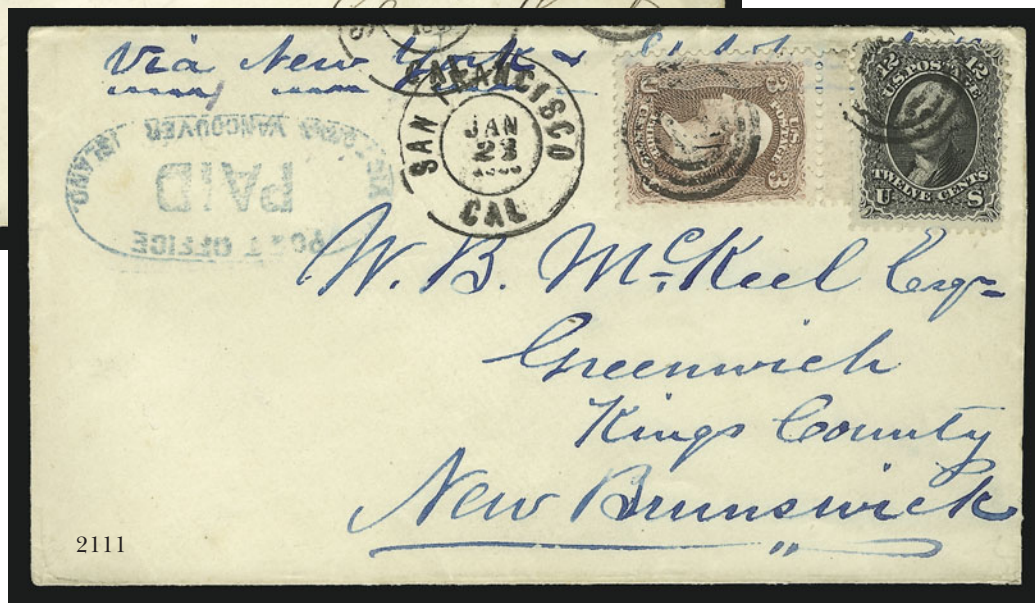 Via New York &
SAN FRANCISCO
JAN
23
CAL
POST OFFICE
PAID
VANCOUVER ISLAND.
3 3
U
12 12
U.S. POSTAGE
TWELVE CENTS
U S
W. B. McKeel Esqr
Greenwich
Kings County
New Brunswick
2111